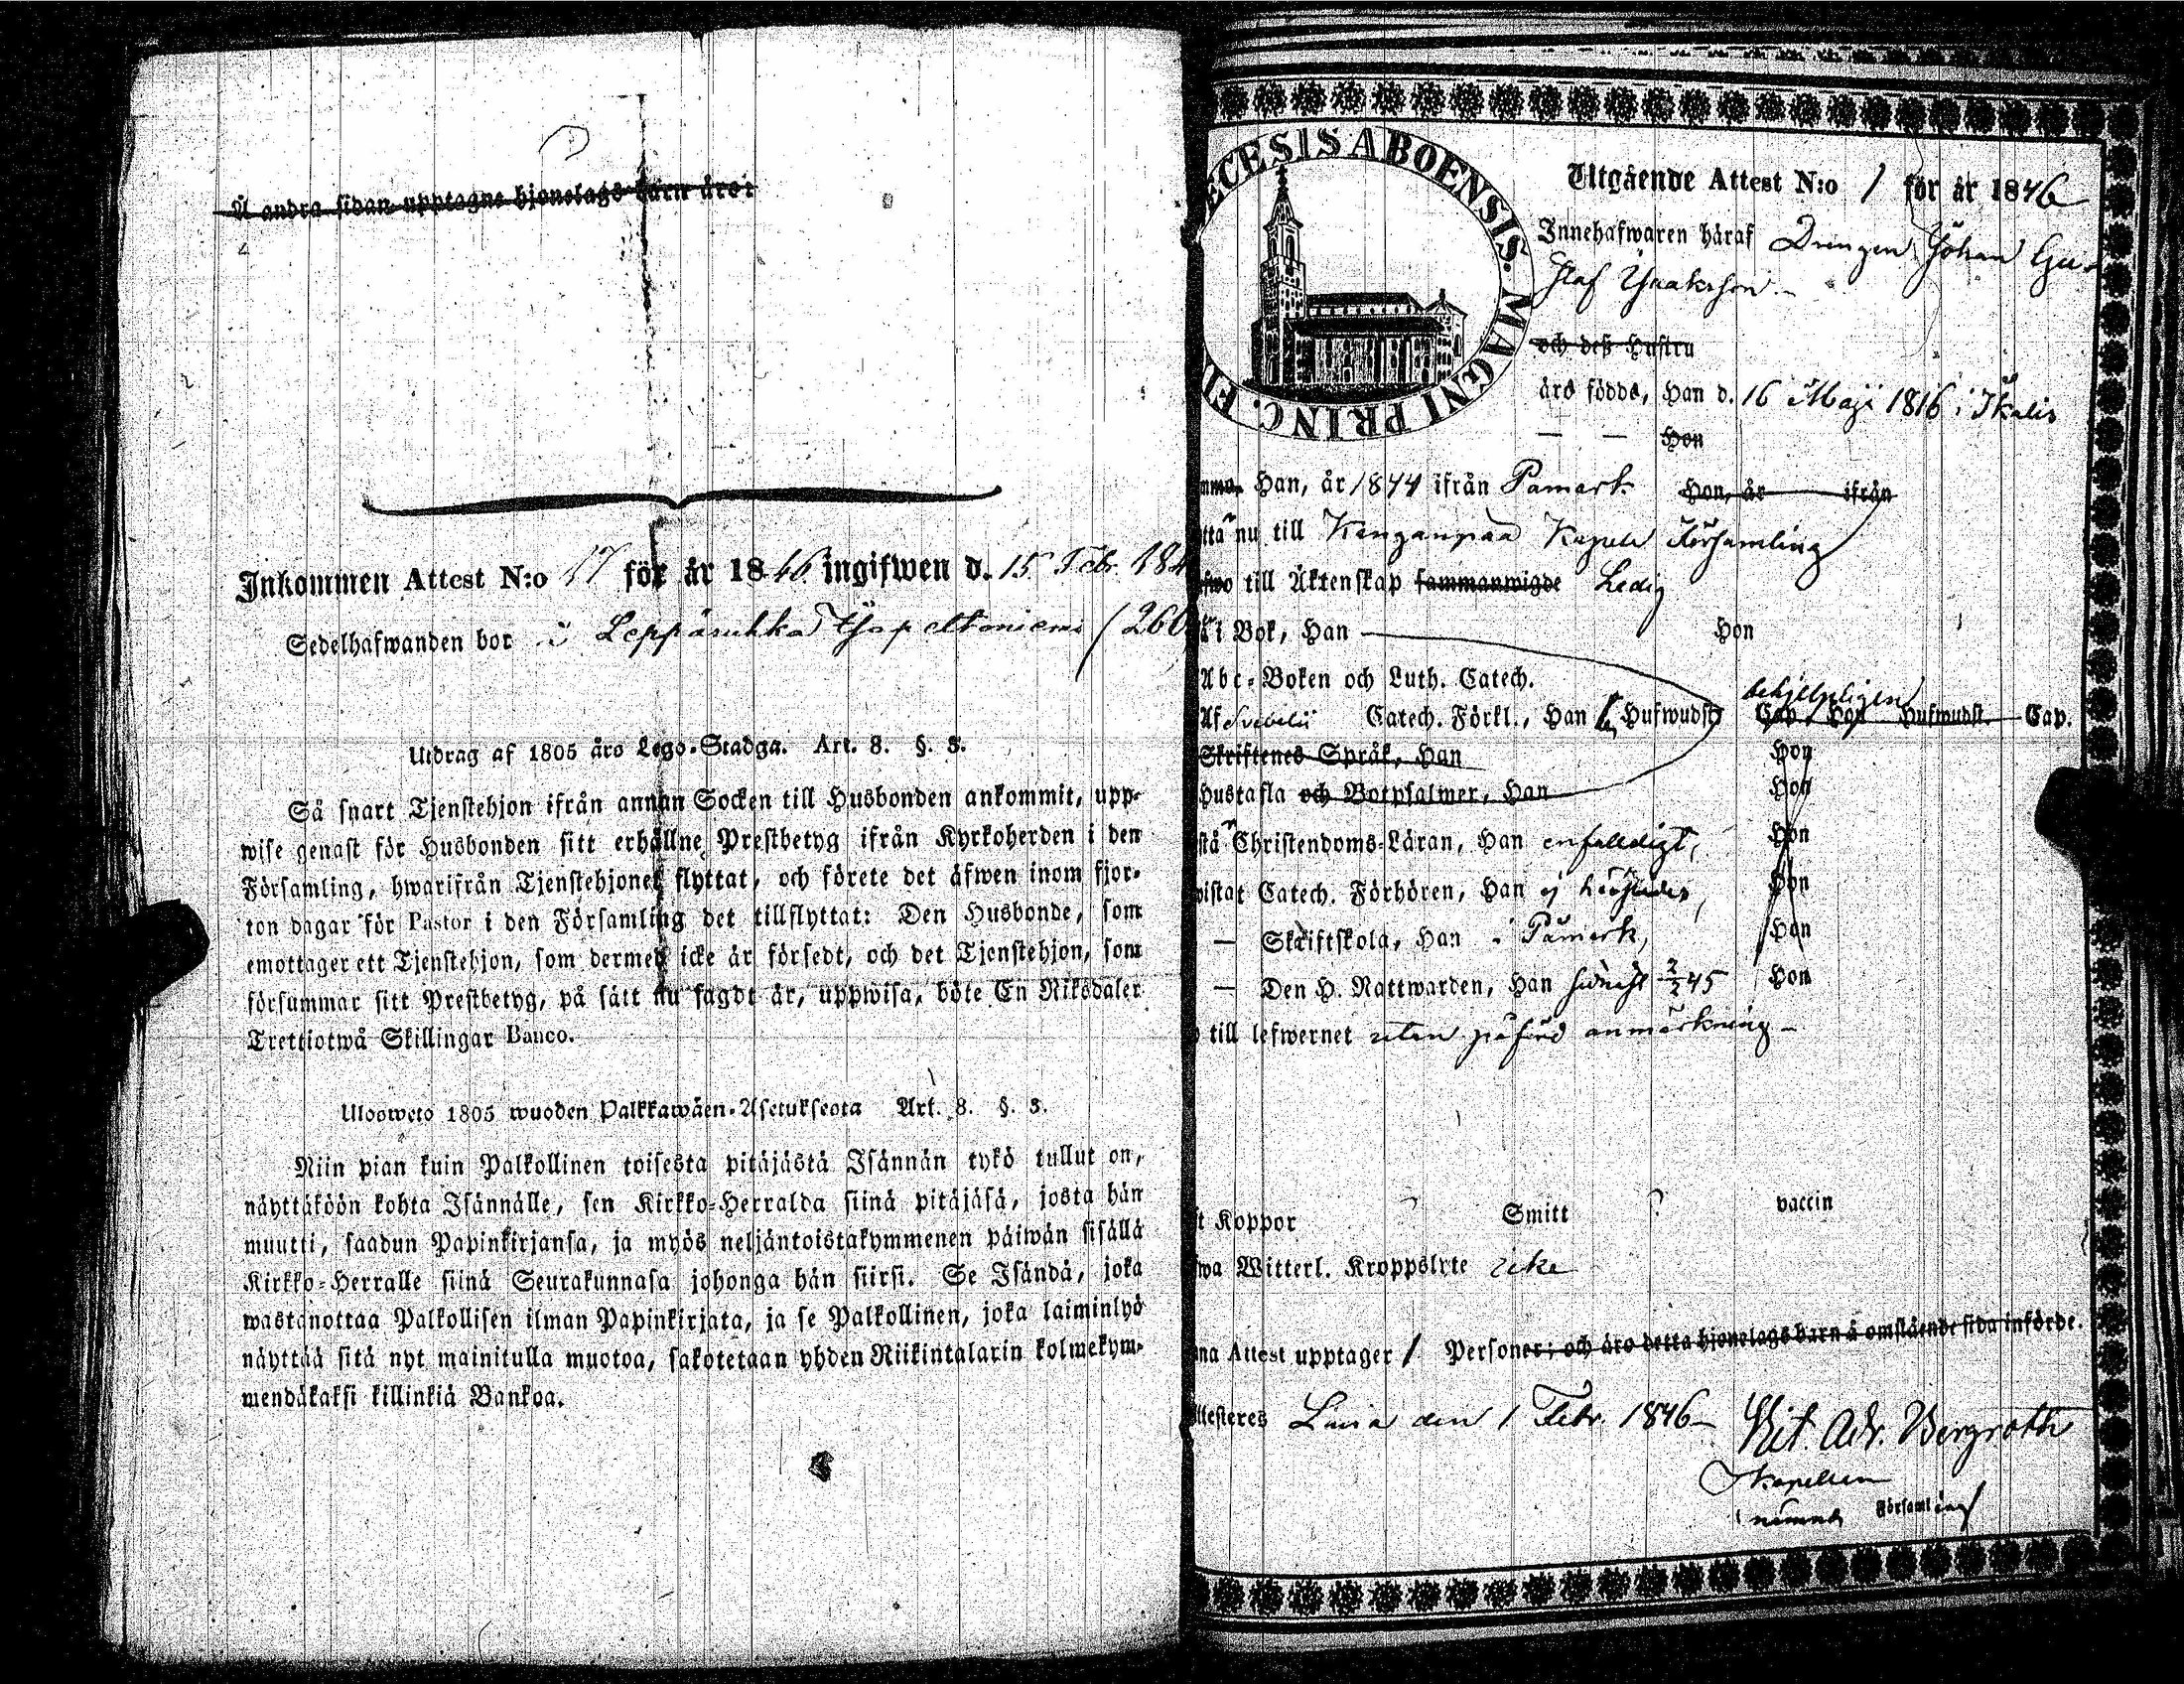 Å andra sidan upptagne hjonelags barn äro:
Inkommen Attest N:o 17 för år 1846 ingifwen d. 15 Febr. 184
Sedelhafwanden bor i Leppäsuhka
Utdrag af 1805 års Lego-Stadga. Art. 8. §. 3.
Så snart Tjenstehjon ifrån annan Socken till Husbonden ankommit, upp-
wise genast för Husbonden sitt erhållne Prestbetyg ifrån Kyrkoherden i den
Församling, hwarifrån Tjenstehjonet flyttat, och förete det äfwen inom fjor-
ton dagar för Pastor i den Församling det tillflyttat: Den Husbonde, som
emottager ett Tjenstehjon, som dermed icke är försedt, och det Tjenstehjon, som
försummar sitt Prestbetyg, på sätt nu sagdt är, uppwisa, böte En Riksdaler
Trettiotwå Skillingar Banco.
Ulosweto 1805 wuoden Palkkawäen-Asetuksesta Art. 8. §. 3.
Niin pian kuin Palkollinen toisesta pitäjästä Isännän tykö tullut on,
näyttäköön kohta Isännälle, sen Kirkko-Herralda siinä pitäjäsä, josta hän
muutti, saadun Papinkirjansa, ja myös neljäntoistakymmenen päiwän sisällä
Kirkko-Herralle siinä Seurakunnasa johonga hän siirsi. Se Isändä, joka
wastanottaa Palkollisen ilman Papinkirjata, ja se Palkollinen, joka laiminlyö
näyttää sitä nyt mainitulla muotoa, sakotetaan yhden Riikintalarin kolmekym-
mendäkaksi killinkiä Bankoa.
ECESIS ABOENSIS. MAGNI PRINC. FI
Utgående Attest N:o 1 för år 1846
Innehafwaren häraf Drengen Johan Gu-
staf Isaksson
och deß Hustru
äro födde, Han d. 16 Maji 1816 i Ikalis
— — Hon
Han, år 1844 ifrån Pamark Hon, år ifrån
nu till Kanganpää Kapell Församling
till Äktenskap sammanwigde Ledig
i Bok, Han Hon
Abc-Boken och Luth. Catech.
Af Svebelii Catech. Förkl., Han Hufwudst behjelpligen Cap. Hon Hufwudst. Cap.
Skriftenes Språk, Han Hon
Hustafla och Botpsalmer, Han Hon
Christendoms-Läran, Han enfaldigt, Hon
Catech. Förhören, Han ej Hon
— Skriftskola, Han i Pamark, Hon
— Den H. Nattwarden, Han sednast 2/2 45 Hon
till lefwernet utan påförd anmärkning
Koppor ? Smitt ? vaccin
Witterl. Kroppslyte icke
Attest upptager 1 Personer; och äro detta hjonelags barn å omstående sida införde.
Lavia den 1 Febr. 1846 Adr. Bergroth
Kapellan
i nämnde Församling